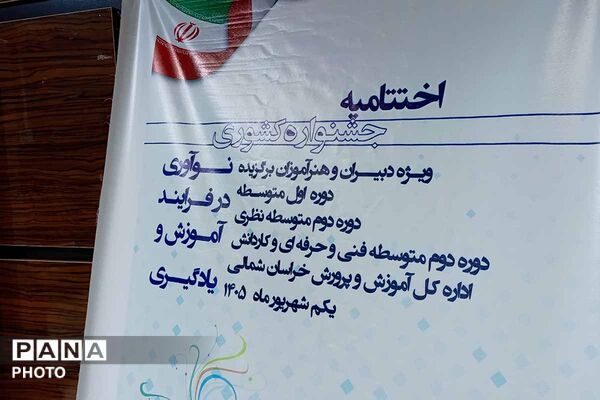 اختتامیه
جشنواره کشوری
نوآوری
در فرایند
آموزش و
یادگیری
ویژه دبیران و هنرآموزان برگزیده
دوره اول متوسطه
دوره دوم متوسطه نظری
دوره دوم متوسطه فنی و حرفه ای و کاردانش
اداره کل آموزش و پرورش خراسان شمالی
یکم شهریور ماه ۱۴۰۵
PANA
PHOTO